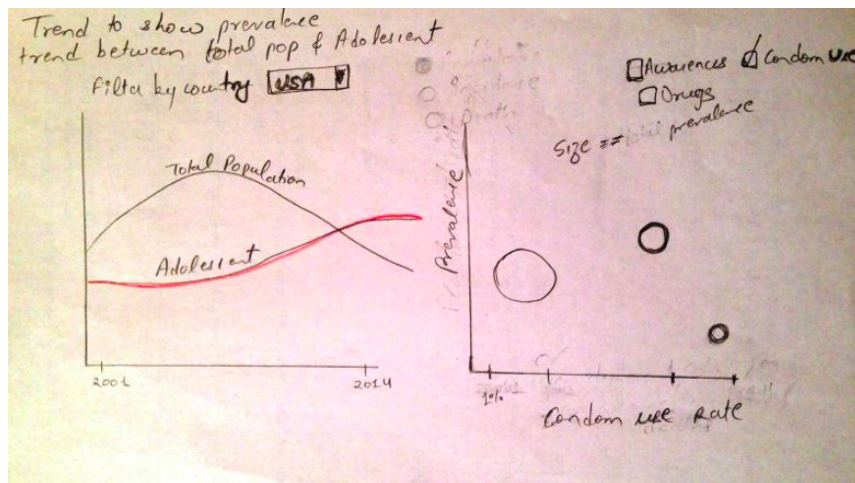 Trend to show prevalence
trend between total pop & Adolescent
Filter by country USA
Total Population
Adolescent
2001
2014
Awarences Condom use
Drugs
Size == total prevalence
Prevalence
1%
Condom use Rate